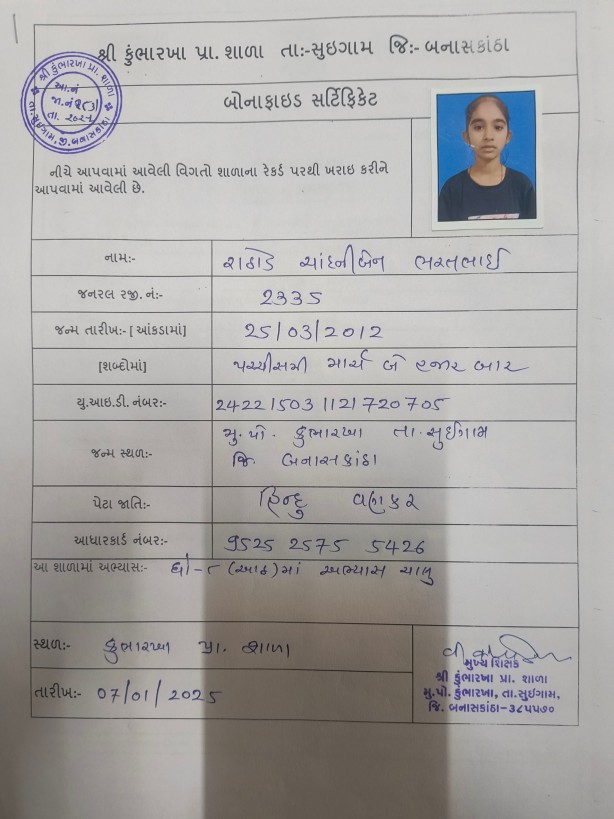 શ્રી કુંભારખા પ્રા. શાળા તા:-સુઇગામ જિ:- બનાસકાંઠા
શ્રી કુંભારખા પ્રા. શાળા
આ.નં
જા.નં ૨૮૩
તા. ૨૦૨૫
તા.સુઇગામ, જી.બનાસકાંઠા
બોનાફાઇડ સર્ટિફિકેટ
નીચે આપવામાં આવેલી વિગતો શાળાના રેકર્ડ પરથી ખરાઇ કરીને
આપવામાં આવેલી છે.
નામ:- રાઠોડ ચાંદનીબેન ભરતભાઈ
જનરલ રજી. નં:- 2335
જન્મ તારીખ:- [આંકડામાં] 25/03/2012
[શબ્દોમાં] પચ્ચીસમી માર્ચ બે હજાર બાર
યુ.આઇ.ડી. નંબર:- 242215031121720705
જન્મ સ્થળ:- મુ.પો. કુંભારખા તા.સુઈગામ
જિ. બનાસકાંઠા
પેટા જાતિ:- હિન્દુ વણકર
આધારકાર્ડ નંબર:- 9525 2575 5426
આ શાળામાં અભ્યાસ:- ધો-૮ (આઠ)માં અભ્યાસ ચાલુ
સ્થળ:- કુંભારખા પ્રા. શાળા
તારીખ:- 07/01/2025
મુખ્ય શિક્ષક
શ્રી કુંભારખા પ્રા. શાળા
મુ.પો. કુંભારખા, તા.સુઈગામ,
જિ. બનાસકાંઠા-૩૮૫૫૭૦